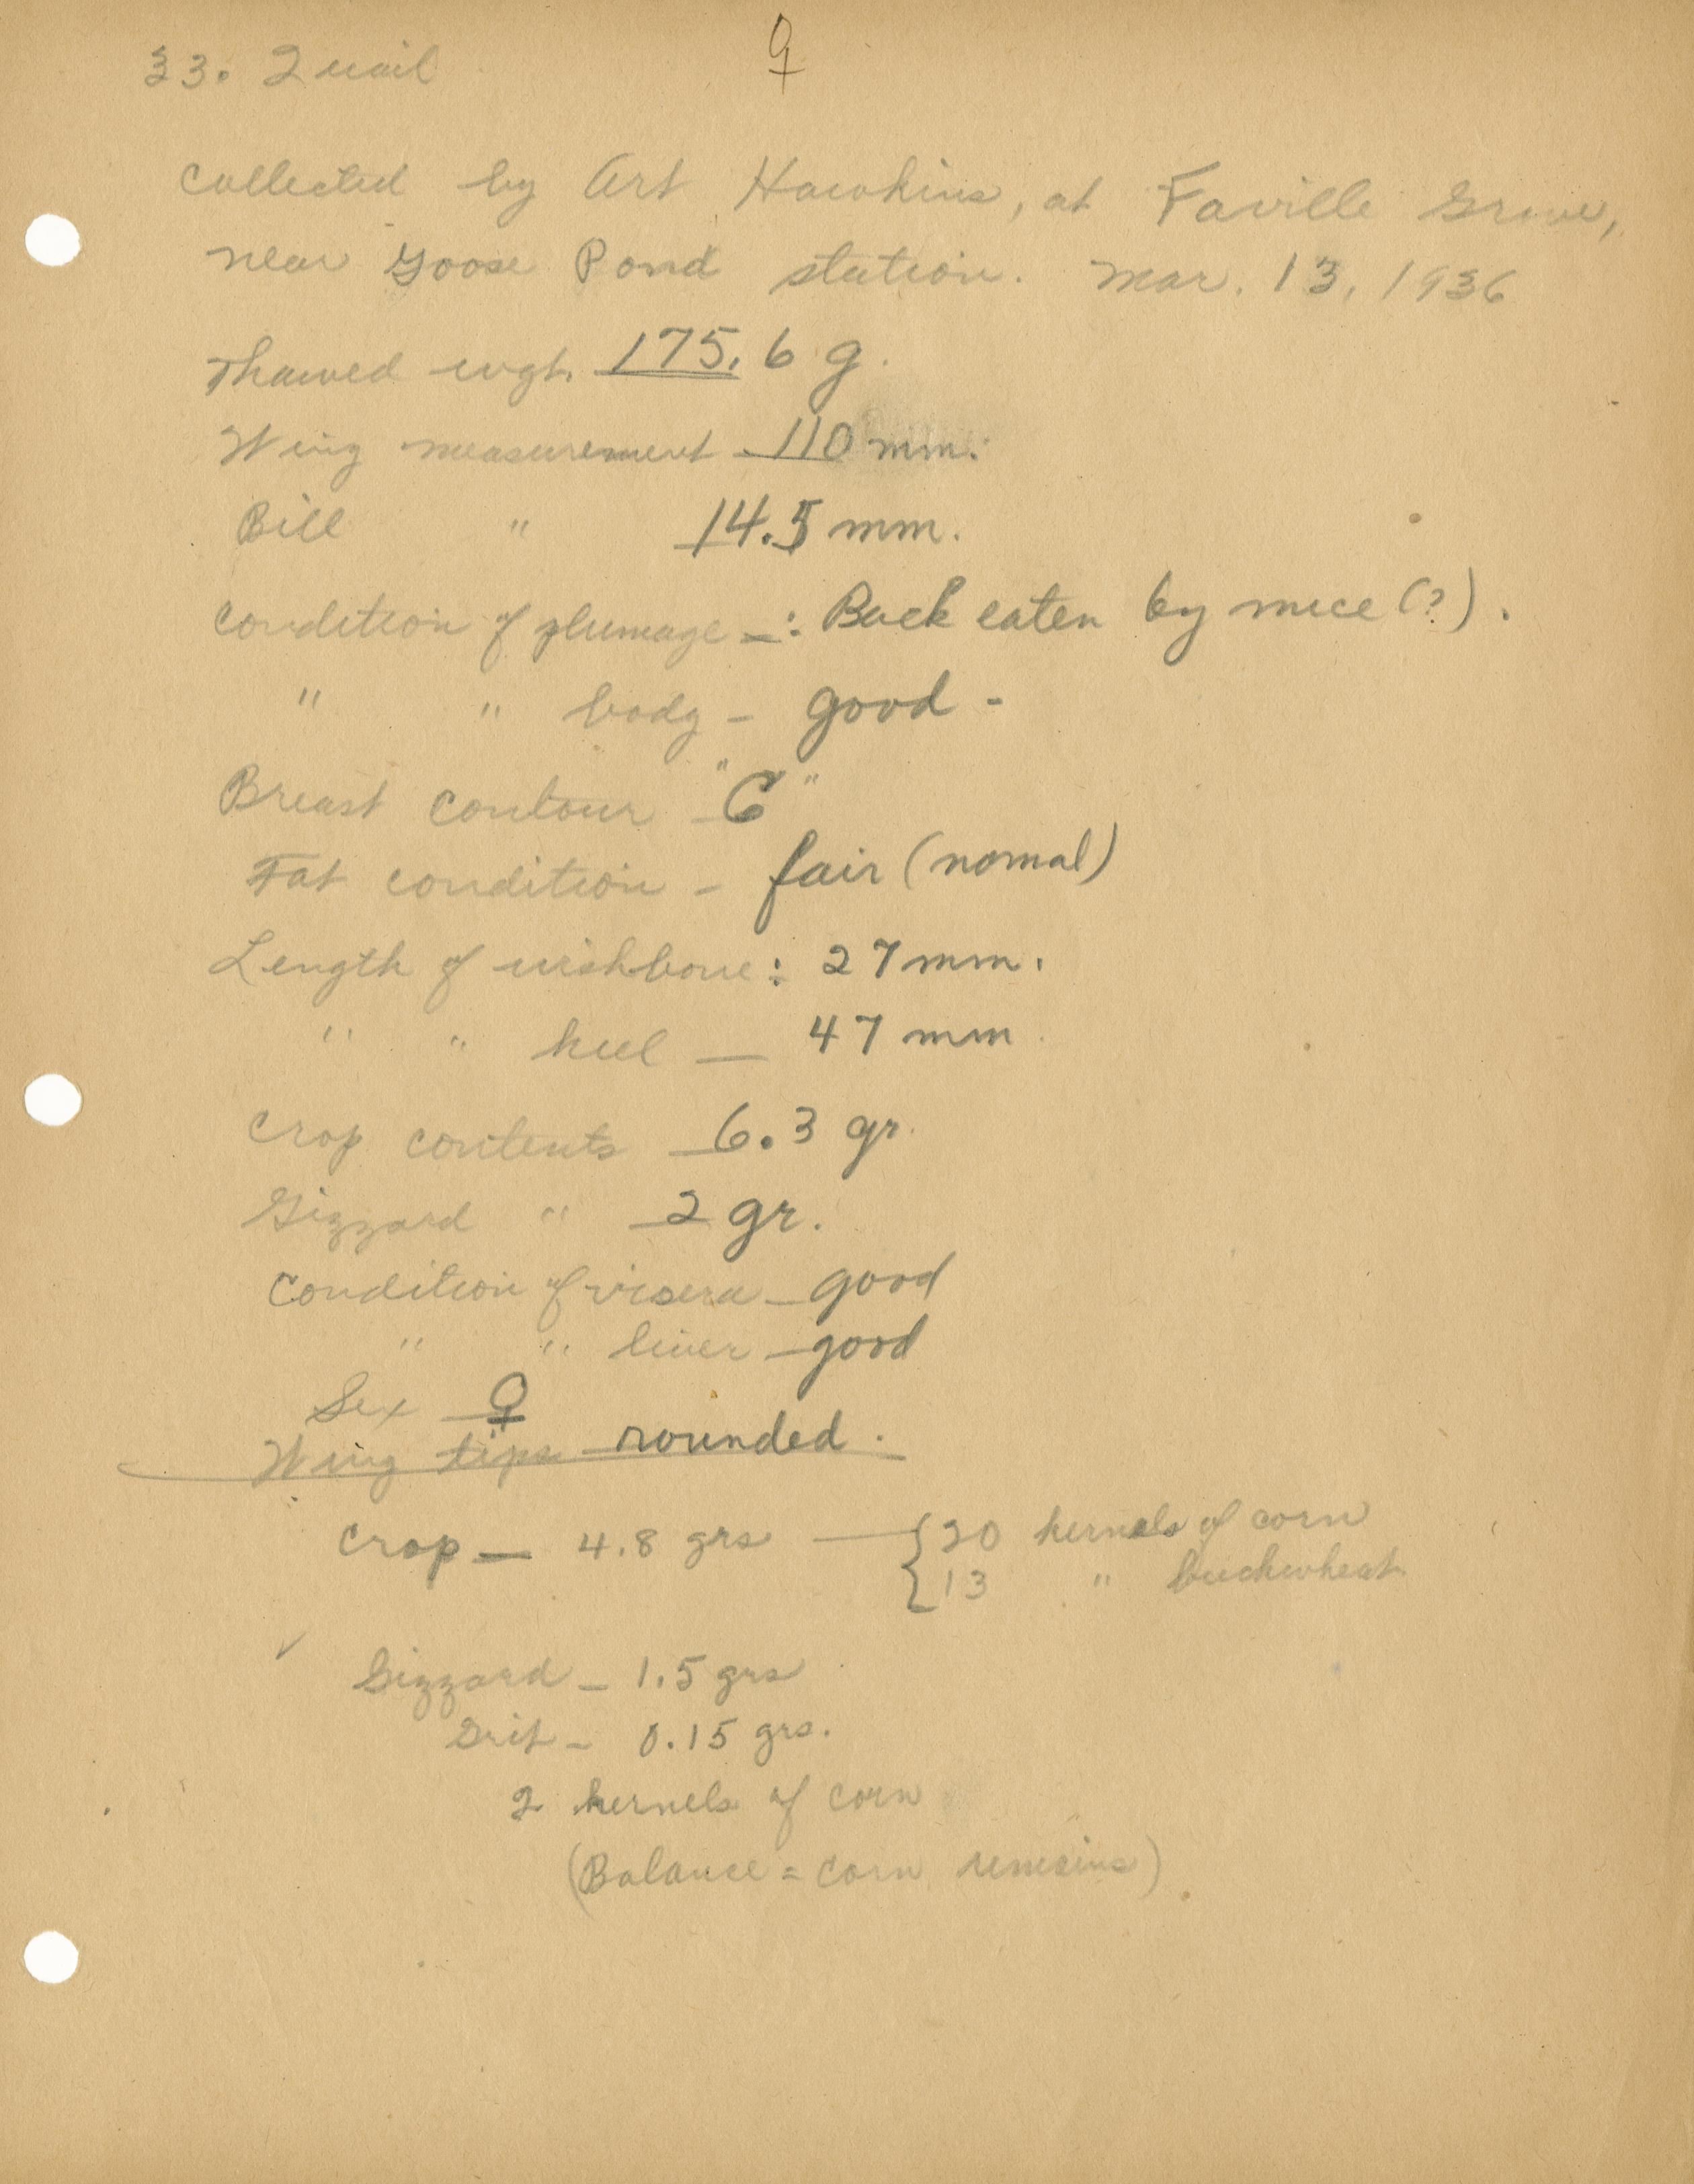 33. Quail ♀
Collected by Art Hawkins, at Faville Grove,
near Goose Pond station. Mar. 13, 1936
Thawed wgt. 175.6 g.
Wing measurement 110 mm.
Bill " 14.5 mm.
Condition of plumage —: Back eaten by mice (?).
" " body - good -
Breast contour "C"
Fat condition - fair (normal)
Length of wishbone: 27 mm.
" " keel — 47 mm.
Crop contents 6.3 gr.
Gizzard " 2 gr.
Condition of visera - good
" " liver - good
Sex ♀
Wing tips rounded.
Crop — 4.8 grs — { 20 kernels of corn
{ 13 " buckwheat
✓
Gizzard - 1.5 grs
Grit - 0.15 grs.
2 kernels of corn
(Balance = corn remains)